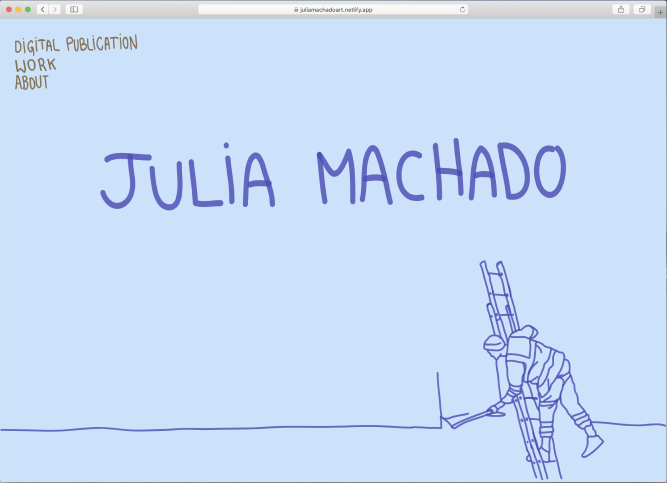 juliamachadoart.netlify.app
DiGiTAL PUBLiCATiON
WORK
ABOUT
JULiA MACHADO